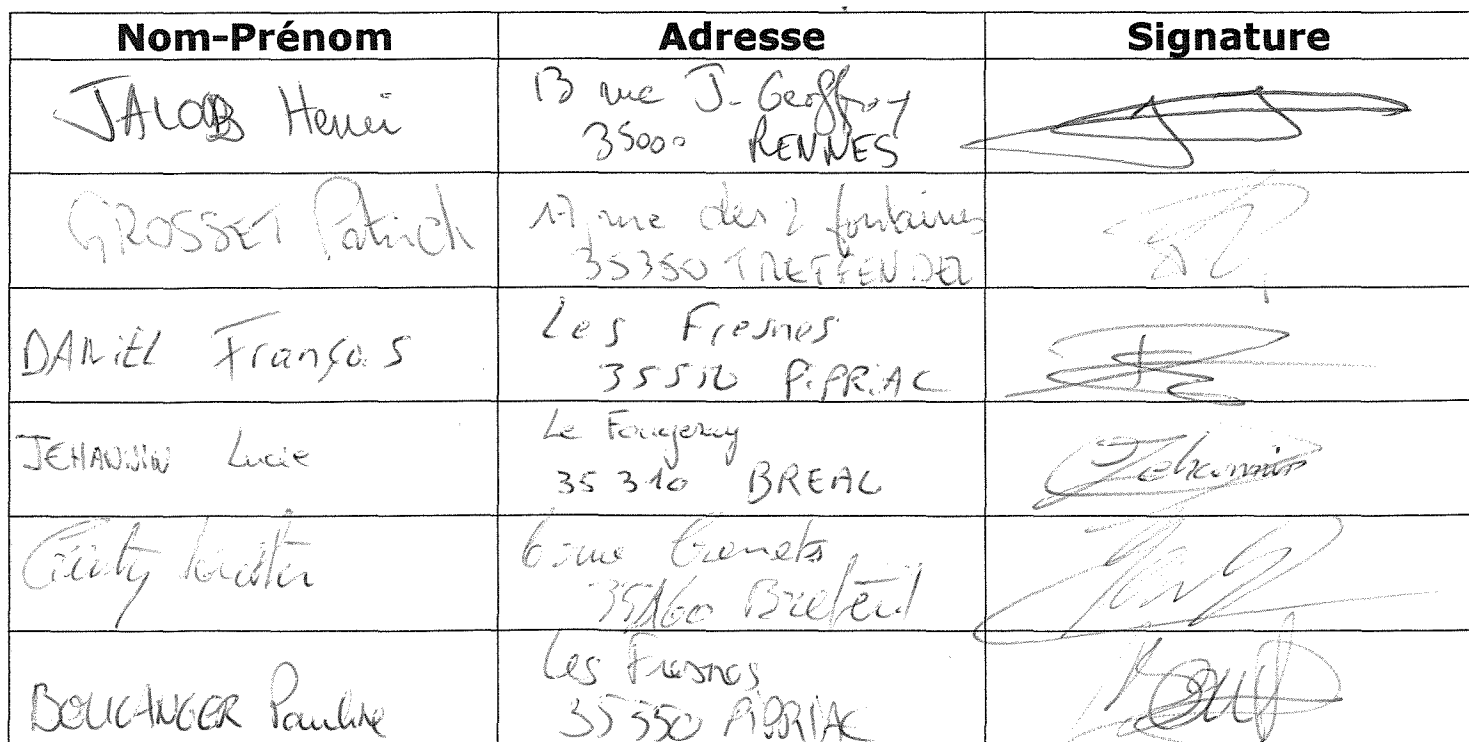 Nom-Prénom Adresse Signature
JACOB Henri 13 rue J. Geoffroy
35000 RENNES
GROSSET Patrick 17 rue des 2 fontaines
35350 TREFFENDEL
DANiEL François Les Fresnes
35550 PiPRiAC
JEHANNIN Lucie Le Fougeray Jehannin
35310 BREAL
6 rue Genets
35160 Breteil
BOULANGER Pauline Les Fresnes
35550 PIPRIAC